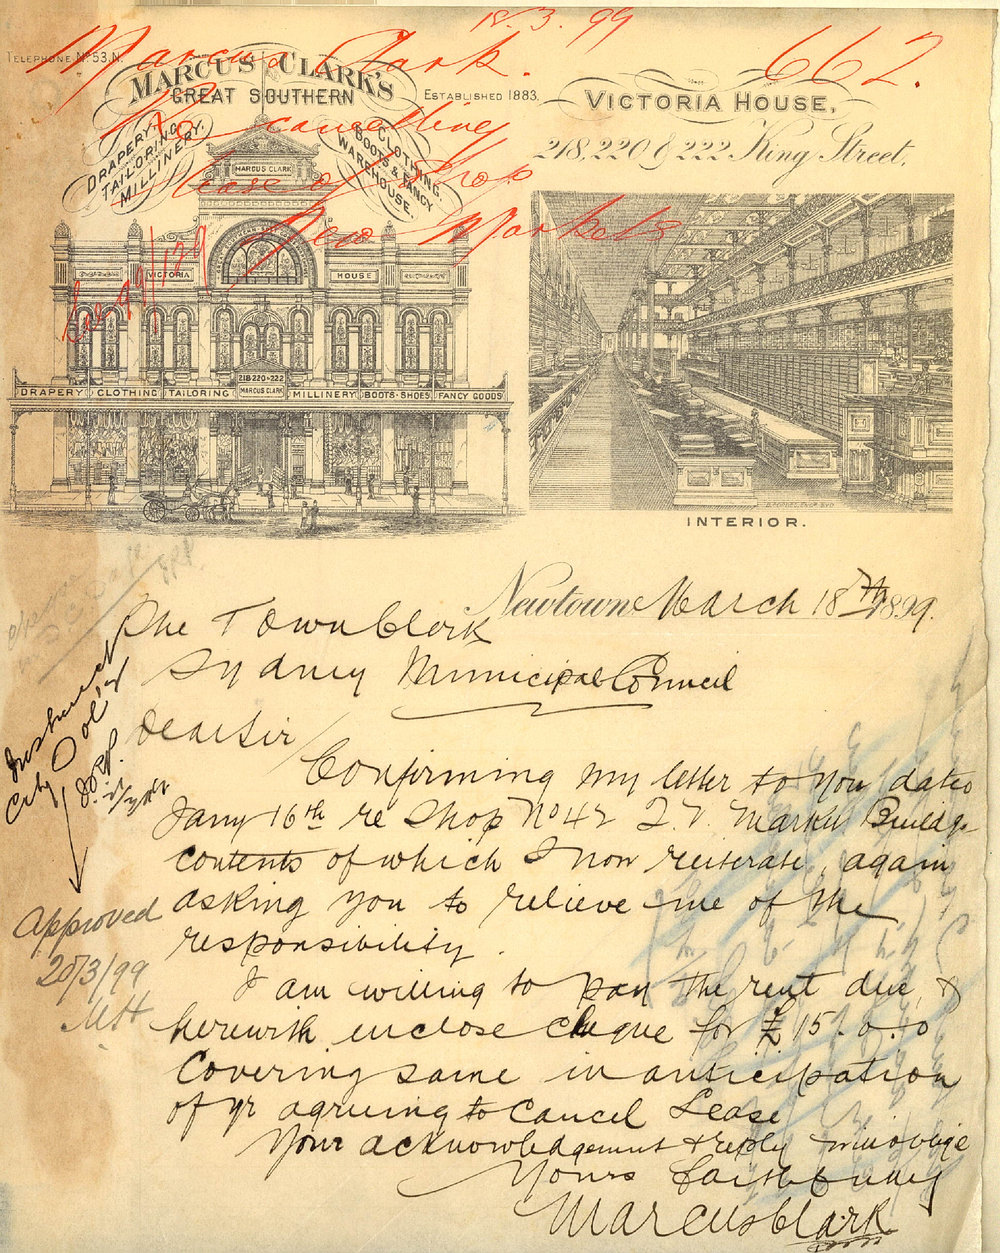 18.3.99
Marcus Clark.
662.
re cancelling
lease of Shop
New Markets
See 99/129
TELEPHONE No 53, N.
MARCUS CLARK'S
GREAT SOUTHERN
ESTABLISHED 1883.
DRAPERY,
TAILORING,
MILLINERY.
CLOTHING,
BOOTS & FANCY
WAREHOUSE.
VICTORIA HOUSE,
218, 220 & 222 King Street,
MARCUS CLARK
VICTORIA
HOUSE
218·220·&·222
DRAPERY CLOTHING TAILORING MARCUS CLARK MILLINERY BOOTS·SHOES FANCY GOODS
INTERIOR.
Newtown March 18th 1899.
The Town Clerk
Sydney Municipal Council
Dear Sir
Confirming my letter to you dated
Jany 16th re Shop No 42 Q.V. Market Buildgs
contents of which I now reiterate, again
asking you to relieve me of the
responsibility.
I am willing to pay the rent due, &
herewith enclose cheque for £15.0.0
Covering same in anticipation
of yr agreeing to cancel Lease
Your acknowledgement & reply will oblige
Yours faithfully
Marcus Clark
Instruct
City Sol'r
Approved
20/3/99